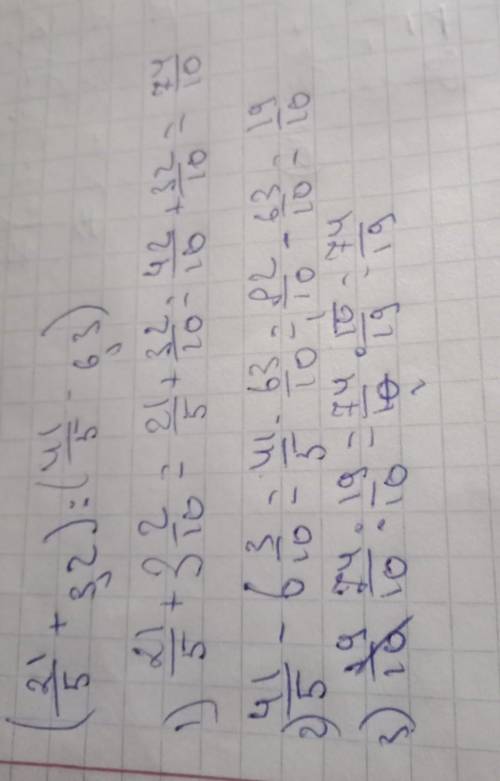 (21/5 + 3,2) : (41/5 - 6,3)
1) 21/5 + 3 2/10 = 21/5 + 32/10 = 42/10 + 32/10 = 74/10
2) 41/5 - 6 3/10 = 41/5 - 63/10 = 82/10 - 63/10 = 19/10
3) 74/10 : 19/10 = 74/10 · 10/19 = 74/19